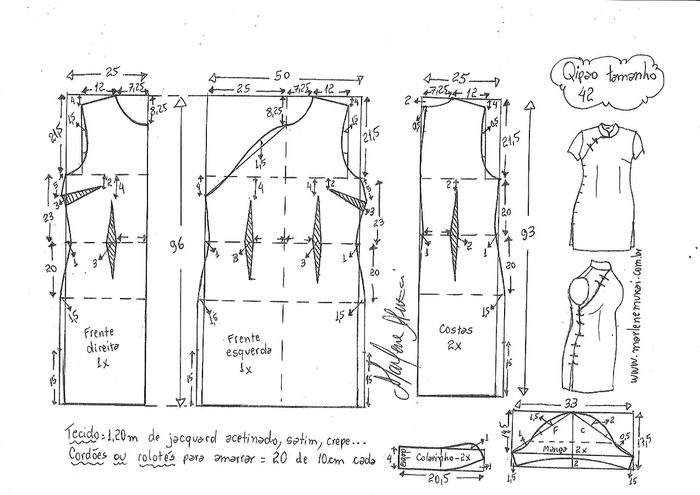 25
12 7,25
4
1,5
8,25
21,5
5
3
2
4
23
1
3
20
1,5
15
Frente
direita
1x
96
50
25 12 7,25
8,25
4
1,5
21,5
1,5
4
4
2
5
3
23
3
3
1
20
1,5
15
Frente
esquerda
1x
Marlene Mukai
25
7,25 12
2
4
0,5
0,5
21,5
2
20
1
2
1
20
1,5
15
Costas
2x
93
Qipao tamanho
42
www.marlenemukai.com.br
Tecido = 1,20m de jacquard acetinado, satim, crepe...
Cordões ou rolotês para amarrar = 20 de 10cm cada
4
Colarinho - 2x
1
1
20,5
33
1,5
F
C
2
1
0,5
Manga 2x
2
1,5
1,5